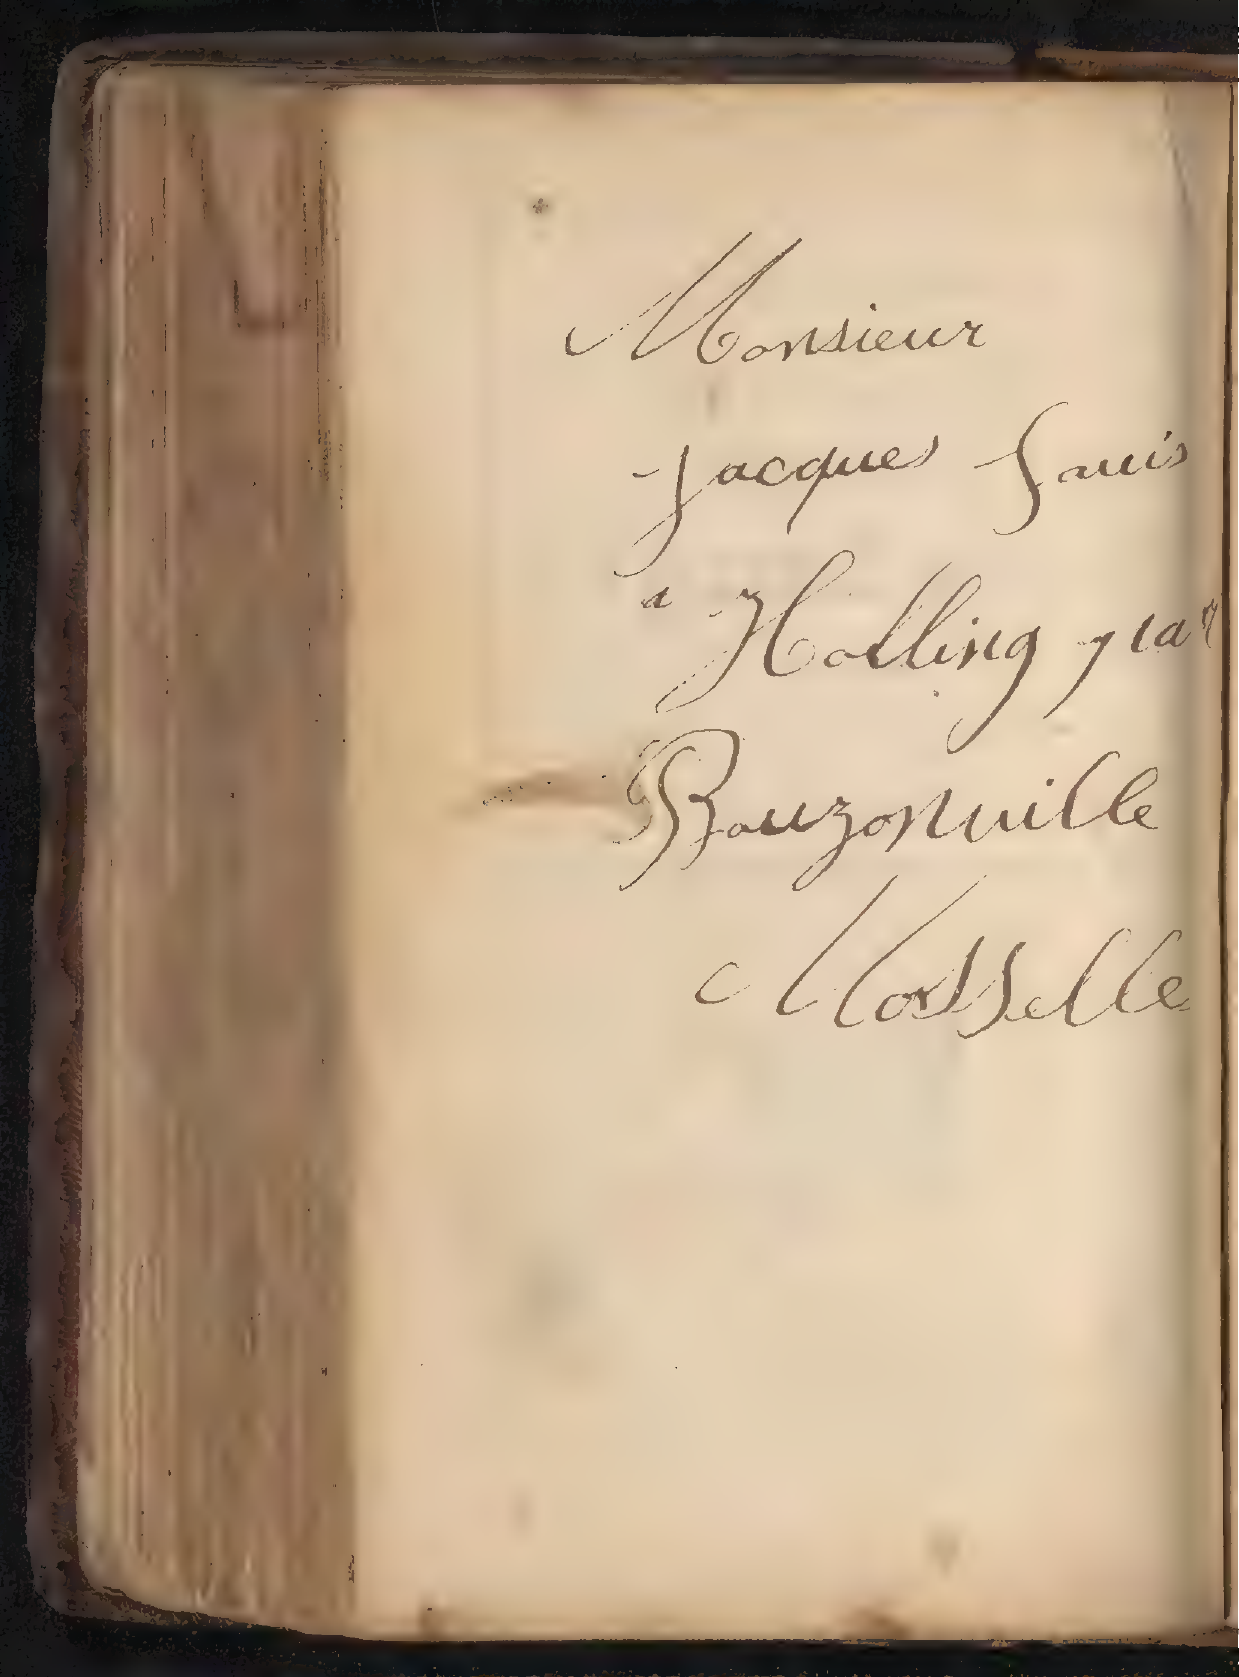 Monsieur
Jacques Louis
a Holling par
Bouzonville
Mosselle